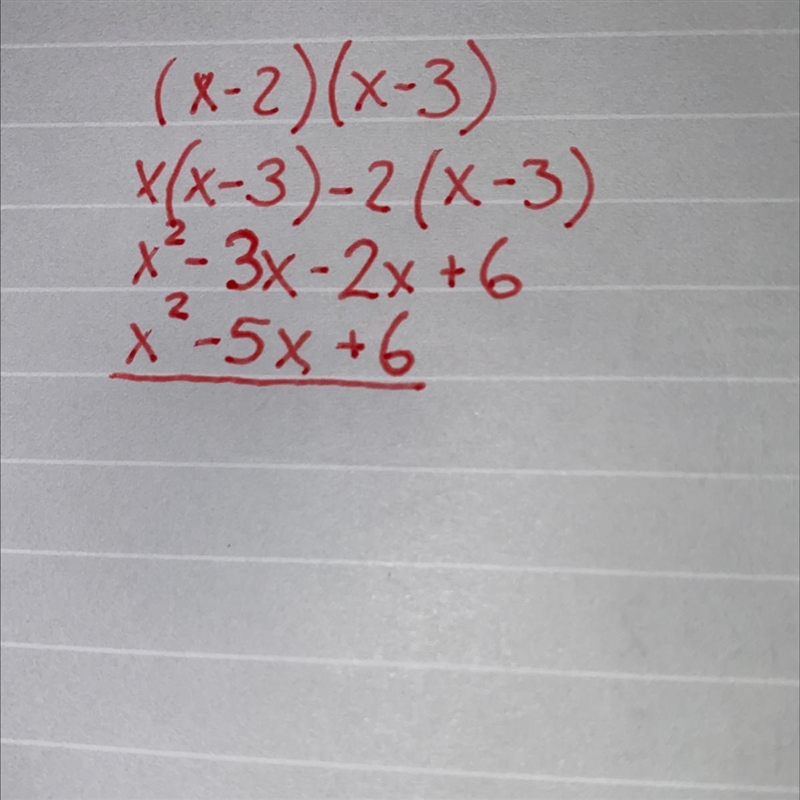 (x-2)(x-3)
x(x-3)-2(x-3)
x²-3x-2x+6
x²-5x+6